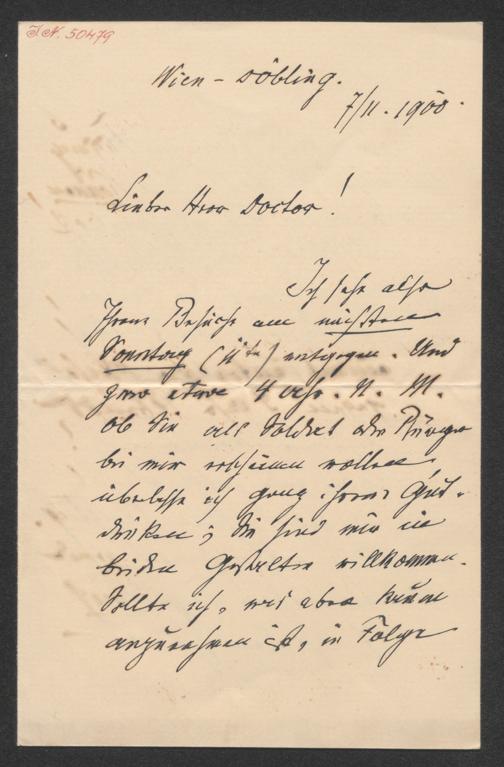 I.N. 50479
Wien – Döbling.
7/11. 1900.
Lieber Herr Doctor!
Ich sehe also
Ihrem Besuche am nächsten
Sonntag (11ten) entgegen. Und
zwar etwa 4 Uhr N. M.
ob Sie als Soldat oder Bürger
bei mir erscheinen wollen,
überlasse ich ganz ihrem Gut-
dünken; Sie sind mir in
beiden Gestalten willkommen.
Sollte ich, was aber kaum
anzunehmen ist, in Folge